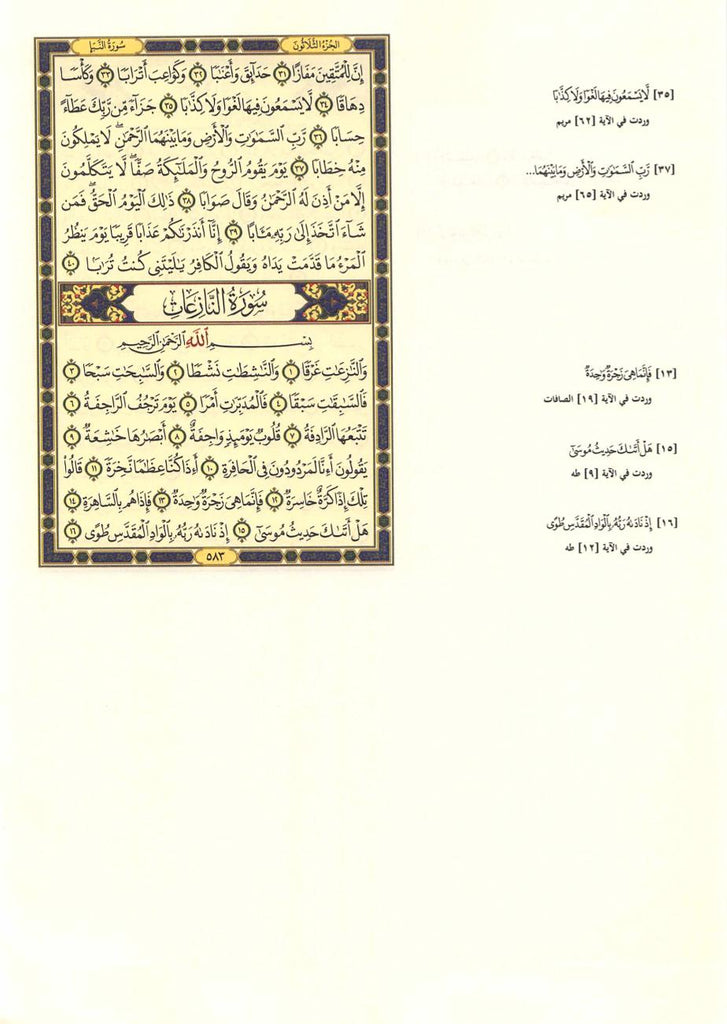 سُورَةُ النَّبَإِ
الجُزْءُ الثَّلَاثُونَ
إِنَّ لِلْمُتَّقِينَ مَفَازًا ٣١ حَدَآئِقَ وَأَعْنَٰبًا ٣٢ وَكَوَاعِبَ أَتْرَابًا ٣٣ وَكَأْسًا
دِهَاقًا ٣٤ لَّا يَسْمَعُونَ فِيهَا لَغْوًا وَلَا كِذَّٰبًا ٣٥ جَزَآءً مِّن رَّبِّكَ عَطَآءً
حِسَابًا ٣٦ رَّبِّ السَّمَٰوَٰتِ وَالْأَرْضِ وَمَا بَيْنَهُمَا الرَّحْمَٰنِۖ لَا يَمْلِكُونَ
مِنْهُ خِطَابًا ٣٧ يَوْمَ يَقُومُ الرُّوحُ وَالْمَلَٰٓئِكَةُ صَفًّاۖ لَّا يَتَكَلَّمُونَ
إِلَّا مَنْ أَذِنَ لَهُ الرَّحْمَٰنُ وَقَالَ صَوَابًا ٣٨ ذَٰلِكَ الْيَوْمُ الْحَقُّۖ فَمَن
شَآءَ اتَّخَذَ إِلَىٰ رَبِّهِۦ مَـَٔابًا ٣٩ إِنَّآ أَنذَرْنَٰكُمْ عَذَابًا قَرِيبًا يَوْمَ يَنظُرُ
الْمَرْءُ مَا قَدَّمَتْ يَدَاهُ وَيَقُولُ الْكَافِرُ يَٰلَيْتَنِي كُنتُ تُرَٰبًا ٤٠
سُورَةُ النَّازِعَاتِ
بِسْمِ اللَّهِ الرَّحْمَٰنِ الرَّحِيمِ
وَالنَّٰزِعَٰتِ غَرْقًا ١ وَالنَّٰشِطَٰتِ نَشْطًا ٢ وَالسَّٰبِحَٰتِ سَبْحًا ٣
فَالسَّٰبِقَٰتِ سَبْقًا ٤ فَالْمُدَبِّرَٰتِ أَمْرًا ٥ يَوْمَ تَرْجُفُ الرَّاجِفَةُ ٦
تَتْبَعُهَا الرَّادِفَةُ ٧ قُلُوبٌ يَوْمَئِذٍ وَاجِفَةٌ ٨ أَبْصَٰرُهَا خَٰشِعَةٌ ٩
يَقُولُونَ أَءِنَّا لَمَرْدُودُونَ فِي الْحَافِرَةِ ١٠ أَءِذَا كُنَّا عِظَٰمًا نَّخِرَةً ١١ قَالُوا
تِلْكَ إِذًا كَرَّةٌ خَاسِرَةٌ ١٢ فَإِنَّمَا هِيَ زَجْرَةٌ وَٰحِدَةٌ ١٣ فَإِذَا هُم بِالسَّاهِرَةِ ١٤
هَلْ أَتَىٰكَ حَدِيثُ مُوسَىٰٓ ١٥ إِذْ نَادَىٰهُ رَبُّهُۥ بِالْوَادِ الْمُقَدَّسِ طُوًى ١٦
٥٨٣
[٣٥] لَّا يَسْمَعُونَ فِيهَا لَغْوًا وَلَا كِذَّٰبًا
وردت في الآية [٦٢] مريم
[٣٧] رَّبِّ السَّمَٰوَٰتِ وَالْأَرْضِ وَمَا بَيْنَهُمَا...
وردت في الآية [٦٥] مريم
[١٣] فَإِنَّمَا هِيَ زَجْرَةٌ وَٰحِدَةٌ
وردت في الآية [١٩] الصافات
[١٥] هَلْ أَتَىٰكَ حَدِيثُ مُوسَىٰٓ
وردت في الآية [٩] طه
[١٦] إِذْ نَادَىٰهُ رَبُّهُۥ بِالْوَادِ الْمُقَدَّسِ طُوًى
وردت في الآية [١٢] طه